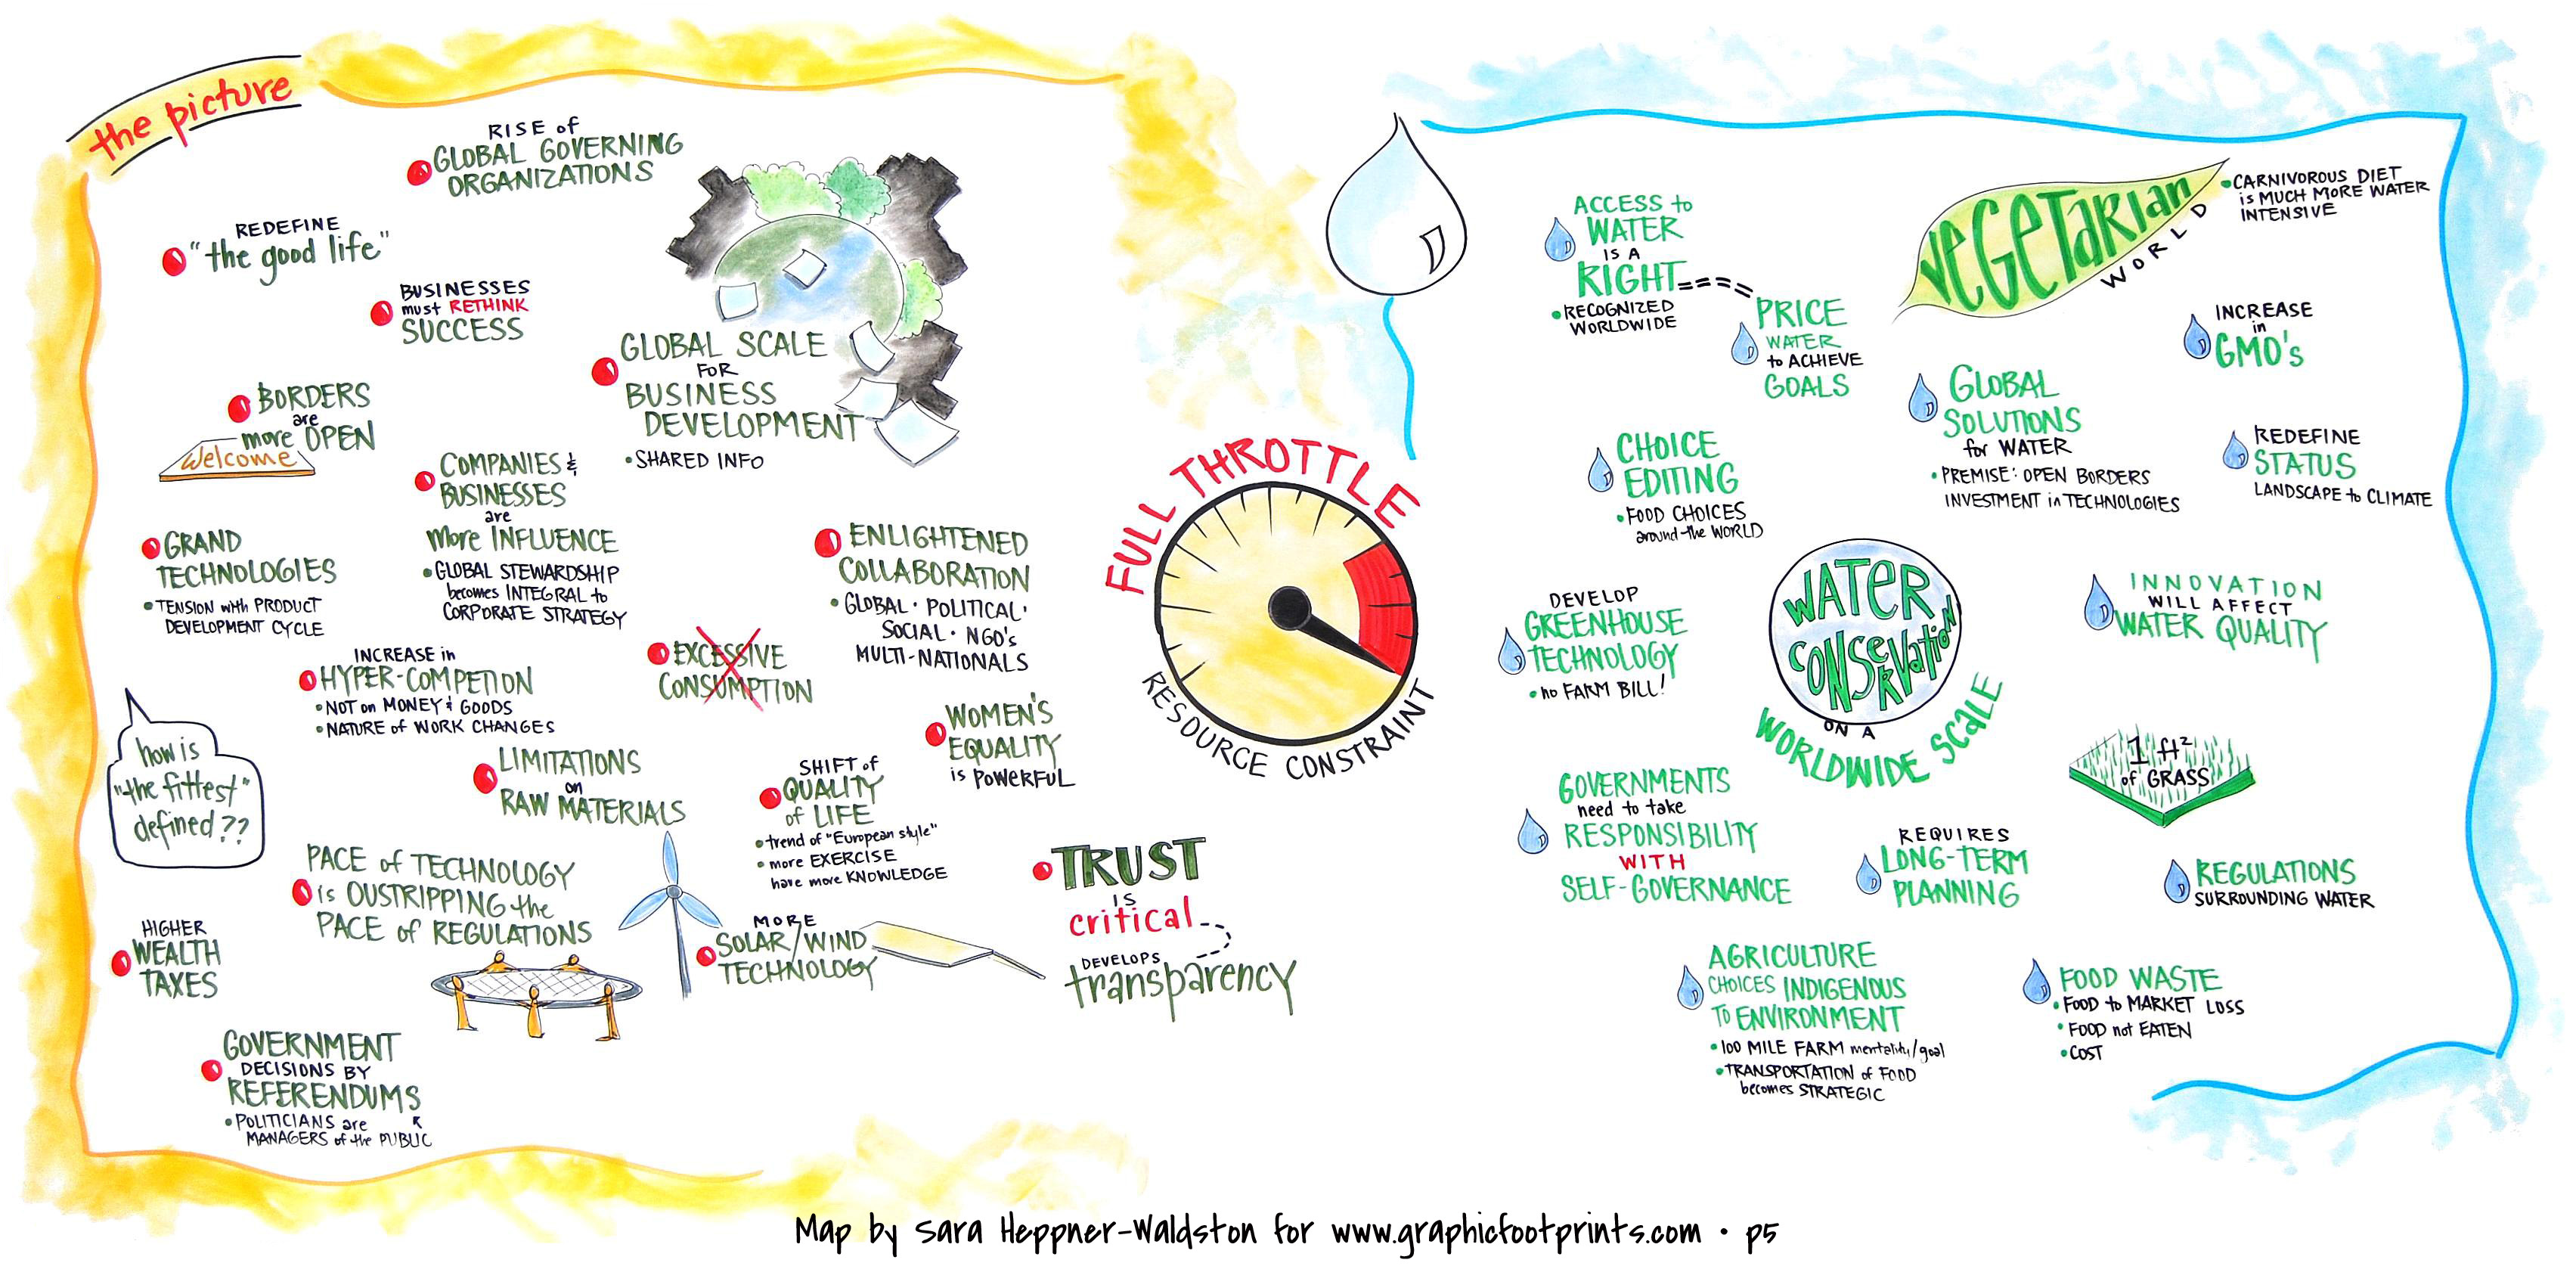 the picture
RISE of
GLOBAL GOVERNING
ORGANIZATIONS
REDEFINE
"the good life"
BUSINESSES
must RETHINK
SUCCESS
GLOBAL SCALE
FOR
BUSINESS
DEVELOPMENT
• SHARED INFO
BORDERS
are
more OPEN
Welcome
COMPANIES &
BUSINESSES
are
More INFLUENCE
• GLOBAL STEWARDSHIP
becomes INTEGRAL to
CORPORATE STRATEGY
GRAND
TECHNOLOGIES
• TENSION with PRODUCT
DEVELOPMENT CYCLE
ENLIGHTENED
COLLABORATION
• GLOBAL • POLITICAL •
SOCIAL • NGO's
MULTI-NATIONALS
INCREASE in
HYPER-COMPETION
• NOT on MONEY & GOODS
• NATURE of WORK CHANGES
EXCESSIVE
CONSUMPTION
WOMEN'S
EQUALITY
is POWERFUL
how is
"the fittest"
defined??
LIMITATIONS
on
RAW MATERIALS
SHIFT of
QUALITY
of LIFE
• trend of "European style"
• more EXERCISE
have more KNOWLEDGE
PACE of TECHNOLOGY
is OUSTRIPPING the
PACE of REGULATIONS
HIGHER
WEALTH
TAXES
MORE
SOLAR/WIND
TECHNOLOGY
TRUST
IS
critical
DEVELOPS
transparency
GOVERNMENT
DECISIONS BY
REFERENDUMS
• POLITICIANS are
MANAGERS of the PUBLIC
FULL THROTTLE
RESOURCE CONSTRAINT
ACCESS to
WATER
IS A
RIGHT
• RECOGNIZED
WORLDWIDE
PRICE
WATER
to ACHIEVE
GOALS
VEGETARIAN
WORLD
• CARNIVOROUS DIET
is MUCH MORE WATER
INTENSIVE
INCREASE
in
GMO's
GLOBAL
SOLUTIONS
for WATER
• PREMISE: OPEN BORDERS
INVESTMENT in TECHNOLOGIES
REDEFINE
STATUS
LANDSCAPE to CLIMATE
CHOICE
EDITING
• FOOD CHOICES
around the WORLD
DEVELOP
GREENHOUSE
TECHNOLOGY
• no FARM BILL!
WATER
CONSERVATION
ON A
WORLDWIDE SCALE
INNOVATION
WILL AFFECT
WATER QUALITY
1 ft²
of GRASS
GOVERNMENTS
need to take
RESPONSIBILITY
WITH
SELF-GOVERNANCE
REQUIRES
LONG-TERM
PLANNING
REGULATIONS
SURROUNDING WATER
AGRICULTURE
CHOICES INDIGENOUS
TO ENVIRONMENT
• 100 MILE FARM mentality/goal
• TRANSPORTATION of FOOD
becomes STRATEGIC
FOOD WASTE
• FOOD to MARKET LOSS
• FOOD not EATEN
• COST
Map by Sara Heppner-Waldston for www.graphicfootprints.com • p5